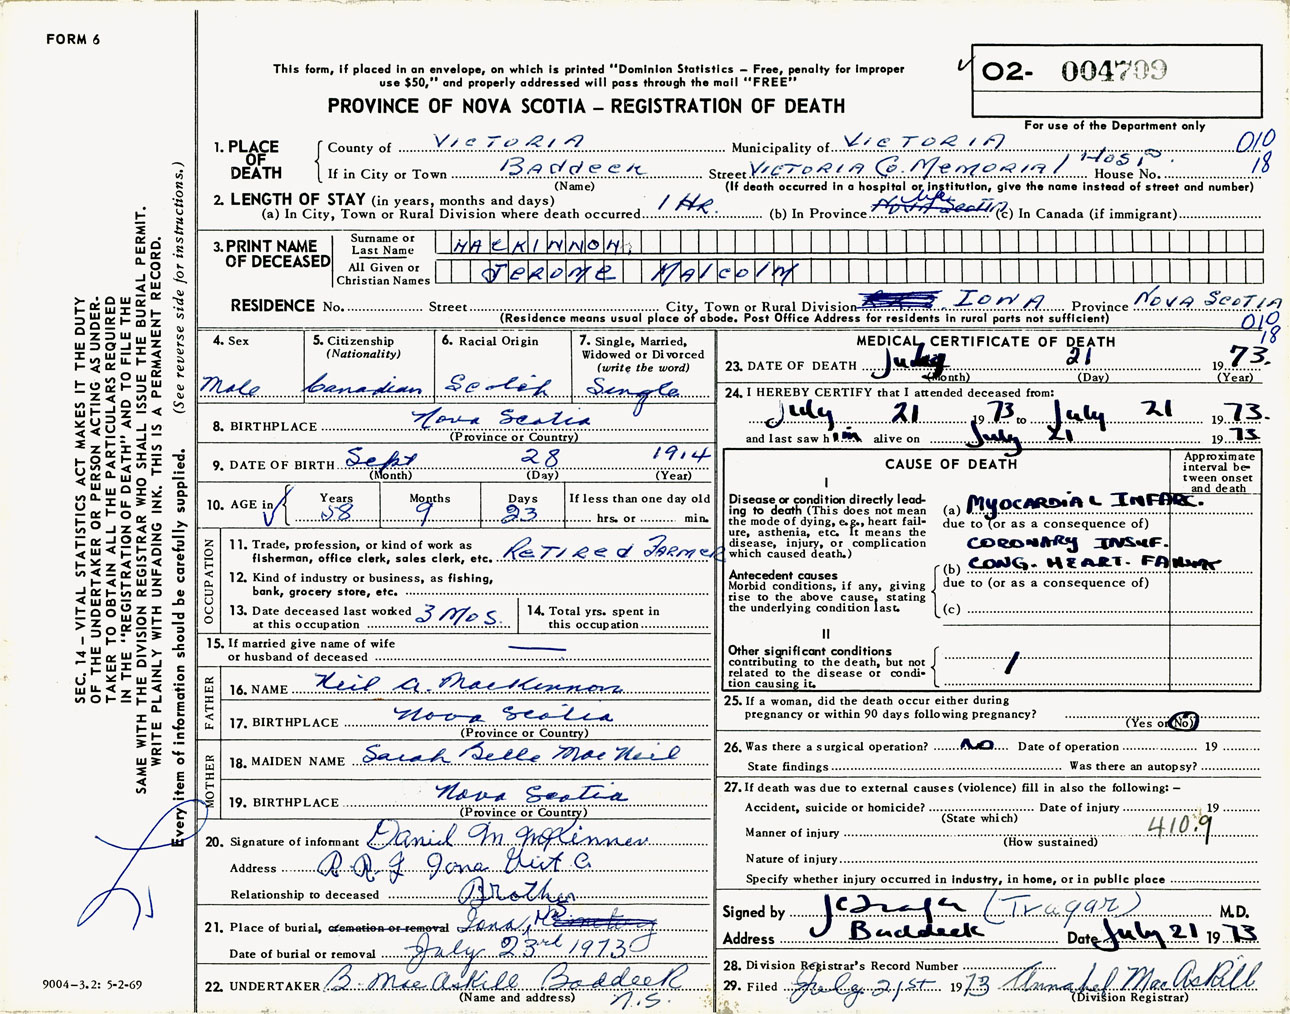 FORM 6
This form, if placed in an envelope, on which is printed "Dominion Statistics – Free, penalty for improper
use $50," and properly addressed will pass through the mail "FREE"
PROVINCE OF NOVA SCOTIA – REGISTRATION OF DEATH
02- 004709
For use of the Department only
SEC. 14 – VITAL STATISTICS ACT MAKES IT THE DUTY
OF THE UNDERTAKER OR PERSON ACTING AS UNDER-
TAKER TO OBTAIN ALL THE PARTICULARS REQUIRED
IN THE "REGISTRATION OF DEATH" AND TO FILE THE
SAME WITH THE DIVISION REGISTRAR WHO SHALL ISSUE THE BURIAL PERMIT.
WRITE PLAINLY WITH UNFADING INK. THIS IS A PERMANENT RECORD.
Every item of information should be carefully supplied. (See reverse side for instructions.)
1. PLACE OF DEATH
County of VICTORIA Municipality of VICTORIA 010
If in City or Town BADDECK Street VICTORIA CO. MEMORIAL HOSP. House No. 18
(Name) (If death occurred in a hospital or institution, give the name instead of street and number)
2. LENGTH OF STAY (in years, months and days)
(a) In City, Town or Rural Division where death occurred 1 HR. (b) In Province life Nova Scotia (c) In Canada (if immigrant)
3. PRINT NAME OF DECEASED
Surname or Last Name MACKINNON
All Given or Christian Names JEROME MALCOLM
RESIDENCE No. Street City, Town or Rural Division IONA Province NOVA SCOTIA
(Residence means usual place of abode. Post Office Address for residents in rural parts not sufficient) 010
18
4. Sex Male
5. Citizenship (Nationality) Canadian
6. Racial Origin Scotish
7. Single, Married, Widowed or Divorced (write the word) Single
8. BIRTHPLACE Nova Scotia
(Province or Country)
9. DATE OF BIRTH Sept 28 1914
(Month) (Day) (Year)
10. AGE in Years 58 Months 9 Days 23 If less than one day old hrs. or min.
OCCUPATION
11. Trade, profession, or kind of work as fisherman, office clerk, sales clerk, etc. RETIRED FARMER
12. Kind of industry or business, as fishing, bank, grocery store, etc.
13. Date deceased last worked at this occupation 3 MOS.
14. Total yrs. spent in this occupation
15. If married give name of wife or husband of deceased
FATHER
16. NAME Neil A. MacKinnon
17. BIRTHPLACE Nova Scotia
(Province or Country)
MOTHER
18. MAIDEN NAME Sarah Belle MacNeil
19. BIRTHPLACE Nova Scotia
(Province or Country)
20. Signature of informant Daniel M McKinnon
Address R.R. Iona Vict Co
Relationship to deceased Brother
21. Place of burial, cremation or removal Iona, NS
Date of burial or removal July 23rd 1973
22. UNDERTAKER B. MacAskill Baddeck
(Name and address) N.S.
9004–3.2: 5-2-69
MEDICAL CERTIFICATE OF DEATH
23. DATE OF DEATH July 21 1973.
(Month) (Day) (Year)
24. I HEREBY CERTIFY that I attended deceased from:
July 21 1973 to July 21 1973.
and last saw him alive on July 21 1973
CAUSE OF DEATH
Approximate interval between onset and death
I
Disease or condition directly leading to death (This does not mean the mode of dying, e.g., heart failure, asthenia, etc. It means the disease, injury, or complication which caused death.)
(a) MYOCARDIAL INFARC.
due to (or as a consequence of)
CORONARY INSUF.
(b) CONG. HEART. FAILURE
due to (or as a consequence of)
(c)
Antecedent causes
Morbid conditions, if any, giving rise to the above cause, stating the underlying condition last.
II
Other significant conditions contributing to the death, but not related to the disease or condition causing it.
25. If a woman, did the death occur either during pregnancy or within 90 days following pregnancy?
(Yes or No)
26. Was there a surgical operation? NO Date of operation 19
State findings Was there an autopsy?
27. If death was due to external causes (violence) fill in also the following: –
Accident, suicide or homicide? Date of injury 19
(State which)
Manner of injury 410.9
(How sustained)
Nature of injury
Specify whether injury occurred in industry, in home, or in public place
Signed by (Tragar) M.D.
Address Baddeck Date July 21 1973
28. Division Registrar's Record Number
29. Filed July 21st 1973 Annabel MacAskill
(Division Registrar)